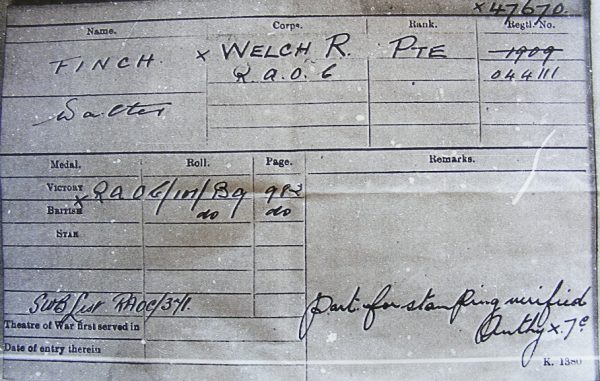 × 47670.
Name. Corps. Rank. Regtl. No.
FINCH. × WELCH R. PTE 1909
R.A.O.C 044111
Walter
Medal. Roll. Page. Remarks.
VICTORY × RAOC/101/B9 982
BRITISH do do
STAR
SWB List RAOC/371.
part. for stamping verified
Theatre of War first served in
Authy ×.7e
Date of entry therein
K. 1380